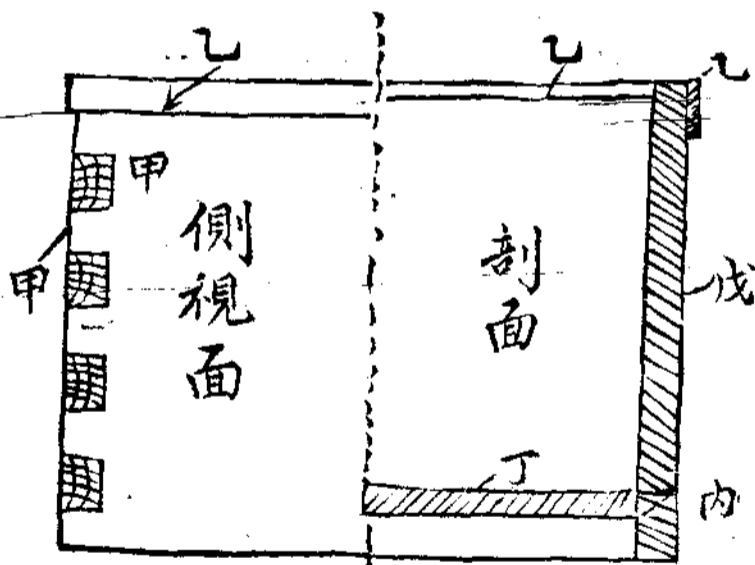 乙
乙
乙
甲
甲
側視面
剖面
戊
丁
內